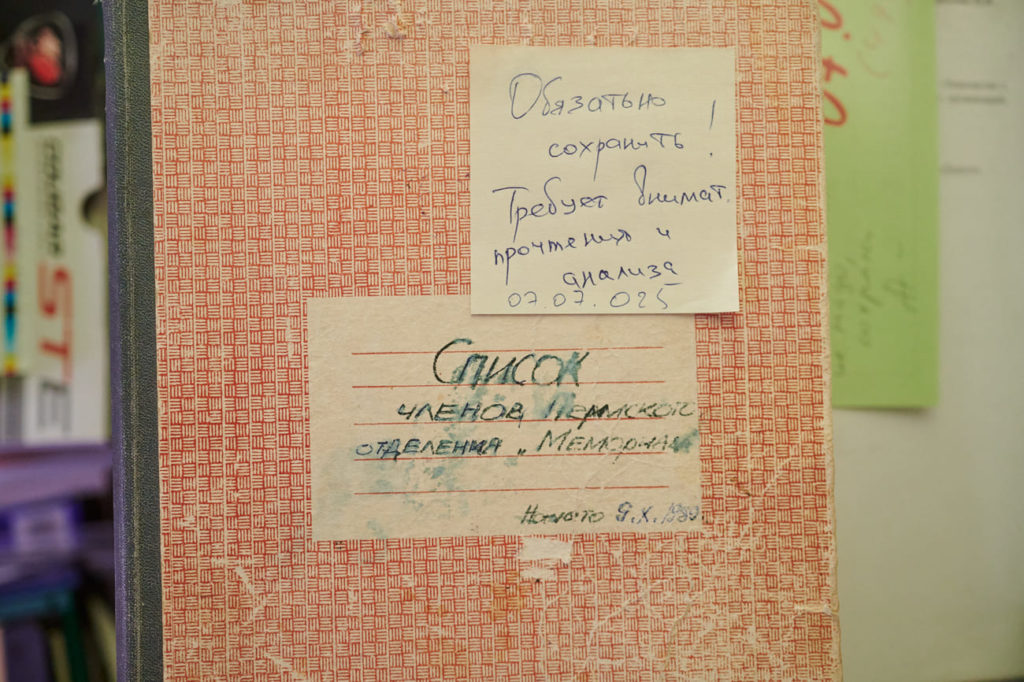 Обязатьно
сохранить!
Требует внимат.
прочтения и
анализа
07.07.025
Список
членов Пермского
отделения „Мемориал
Начато 9.X.1989
STE